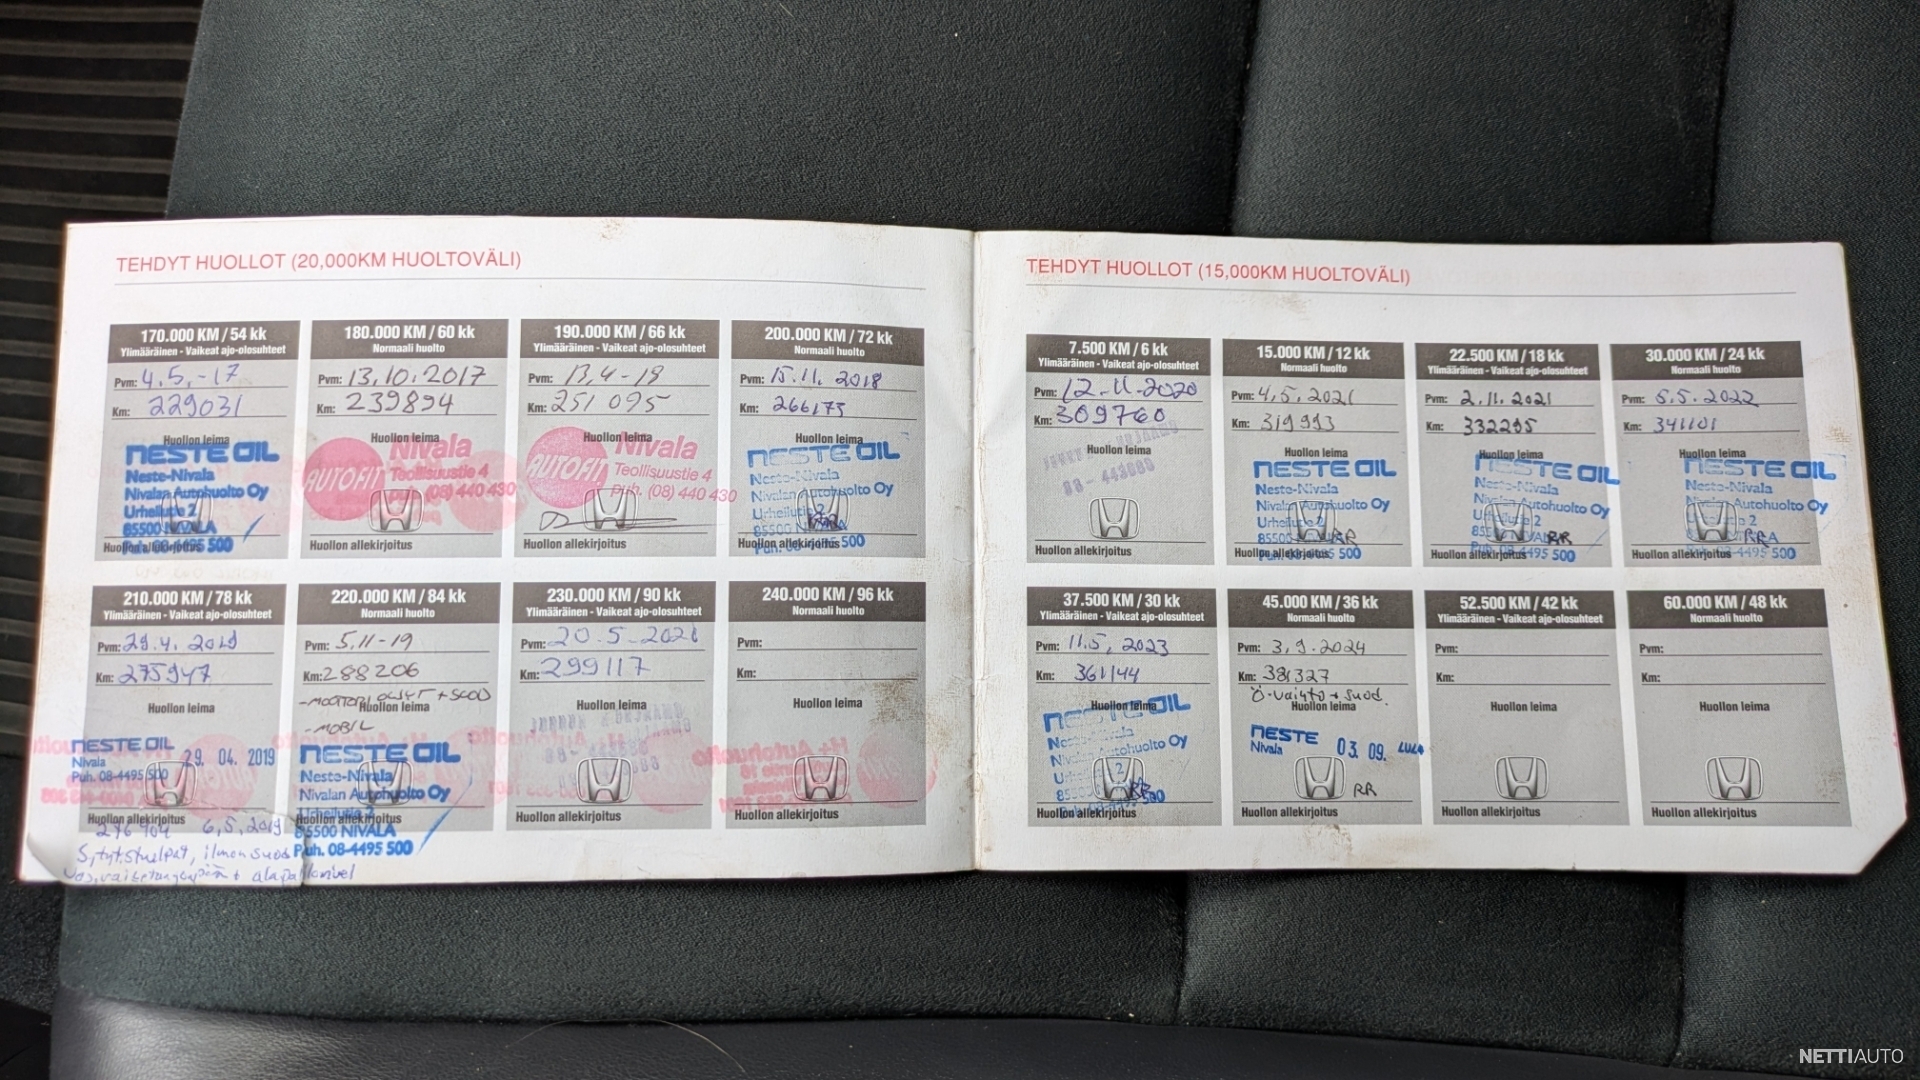 TEHDYT HUOLLOT (20,000KM HUOLTOVÄLI)
170.000 KM / 54 kk
Ylimääräinen - Vaikeat ajo-olosuhteet
Pvm: 4.5.-17
Km: 229031
Huollon leima
NESTE OIL
Neste-Nivala
Nivalan Autohuolto Oy
Urheilutie 2
85500 NIVALA
Puh. 08-4495 500
Huollon allekirjoitus
180.000 KM / 60 kk
Normaali huolto
Pvm: 13.10.2017
Km: 239894
Huollon leima
AUTOFIT
Nivala
Teollisuustie 4
puh. (08) 440 430
Huollon allekirjoitus
190.000 KM / 66 kk
Ylimääräinen - Vaikeat ajo-olosuhteet
Pvm: 13,4-18
Km: 251 095
Huollon leima
AUTOFIT
Nivala
Teollisuustie 4
puh. (08) 440 430
Huollon allekirjoitus
200.000 KM / 72 kk
Normaali huolto
Pvm: 15.11. 2018
Km: 266173
Huollon leima
NESTE OIL
Neste-Nivala
Nivalan Autohuolto Oy
Urheilutie 2
85500 NIVALA
Puh. 08-4495 500
Huollon allekirjoitus
210.000 KM / 78 kk
Ylimääräinen - Vaikeat ajo-olosuhteet
Pvm: 29.4. 2019
Km: 275947
Huollon leima
NESTE OIL
Nivala
Puh. 08-4495 500
29. 04. 2019
Huollon allekirjoitus
276704 6,5,2019
220.000 KM / 84 kk
Normaali huolto
Pvm: 5.11-19
Km: 288206
Huollon leima
-MOBIL
NESTE OIL
Neste-Nivala
Nivalan Autohuolto Oy
Urheilutie 2
Huollon allekirjoitus
85500 NIVALA
Puh. 08-4495 500
230.000 KM / 90 kk
Ylimääräinen - Vaikeat ajo-olosuhteet
Pvm: 20.5.2020
Km: 299117
Huollon leima
Huollon allekirjoitus
240.000 KM / 96 kk
Normaali huolto
Pvm:
Km:
Huollon leima
Huollon allekirjoitus
TEHDYT HUOLLOT (15,000KM HUOLTOVÄLI)
7.500 KM / 6 kk
Ylimääräinen - Vaikeat ajo-olosuhteet
Pvm: 12.11.2020
Km: 309760
Huollon leima
08 - 443000
Huollon allekirjoitus
15.000 KM / 12 kk
Normaali huolto
Pvm: 4,5.2021
Km: 319993
Huollon leima
NESTE OIL
Neste-Nivala
Nivalan Autohuolto Oy
Urheilutie 2
85500
RR
Puh. 08-4495 500
Huollon allekirjoitus
22.500 KM / 18 kk
Ylimääräinen - Vaikeat ajo-olosuhteet
Pvm: 2.11.2021
Km: 332295
Huollon leima
NESTE OIL
Neste-Nivala
Nivalan Autohuolto Oy
Urheilutie 2
RR
Puh. 08-4495 500
Huollon allekirjoitus
30.000 KM / 24 kk
Normaali huolto
Pvm: 5.5.2022
Km: 341101
Huollon leima
NESTE OIL
Neste-Nivala
Nivalan Autohuolto Oy
Urheilutie 2
RR
Puh. 08-4495 500
Huollon allekirjoitus
37.500 KM / 30 kk
Ylimääräinen - Vaikeat ajo-olosuhteet
Pvm: 11.5, 2023
Km: 361144
Huollon leima
NESTE OIL
Neste-Nivala
Nivalan Autohuolto Oy
Urheilutie 2
RR
Huollon allekirjoitus
45.000 KM / 36 kk
Normaali huolto
Pvm: 3.9.2024
Km: 381327
Ö-vaihto + suod.
Huollon leima
NESTE
Nivala
03. 09.
RR
Huollon allekirjoitus
52.500 KM / 42 kk
Ylimääräinen - Vaikeat ajo-olosuhteet
Pvm:
Km:
Huollon leima
Huollon allekirjoitus
60.000 KM / 48 kk
Normaali huolto
Pvm:
Km:
Huollon leima
Huollon allekirjoitus
NETTIAUTO